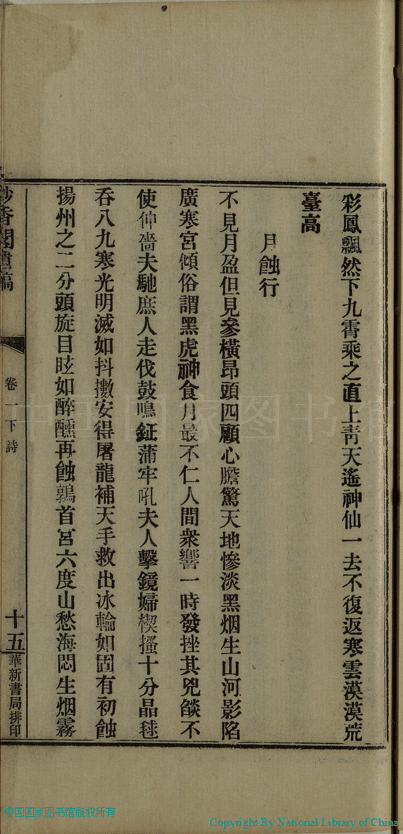 彩鳳飄然下九霄乘之直上靑天遙神仙一去不復返寒雲漠漠荒
臺高
月蝕行
不見月盈但見參橫昂頭四顧心膽驚天地慘淡黑烟生山河影陷
廣寒宮傾俗謂黑虎神食月最不仁人間衆響一時發挫其兇燄不
使伸嗇夫馳庶人走伐鼓鳴鉦蒲牢吼夫人擊鏡婦楔搔十分晶毬
吞八九寒光明滅如抖擻安得屠龍補天手救出冰輪如固有初蝕
揚州之二分頭旋目眩如醉醺再蝕鶉首宮六度山愁海悶生烟霧
香閣遺稿
卷一下詩
十五
華新書局排印
中国国家图书馆版权所有
Copyright By National Library of China